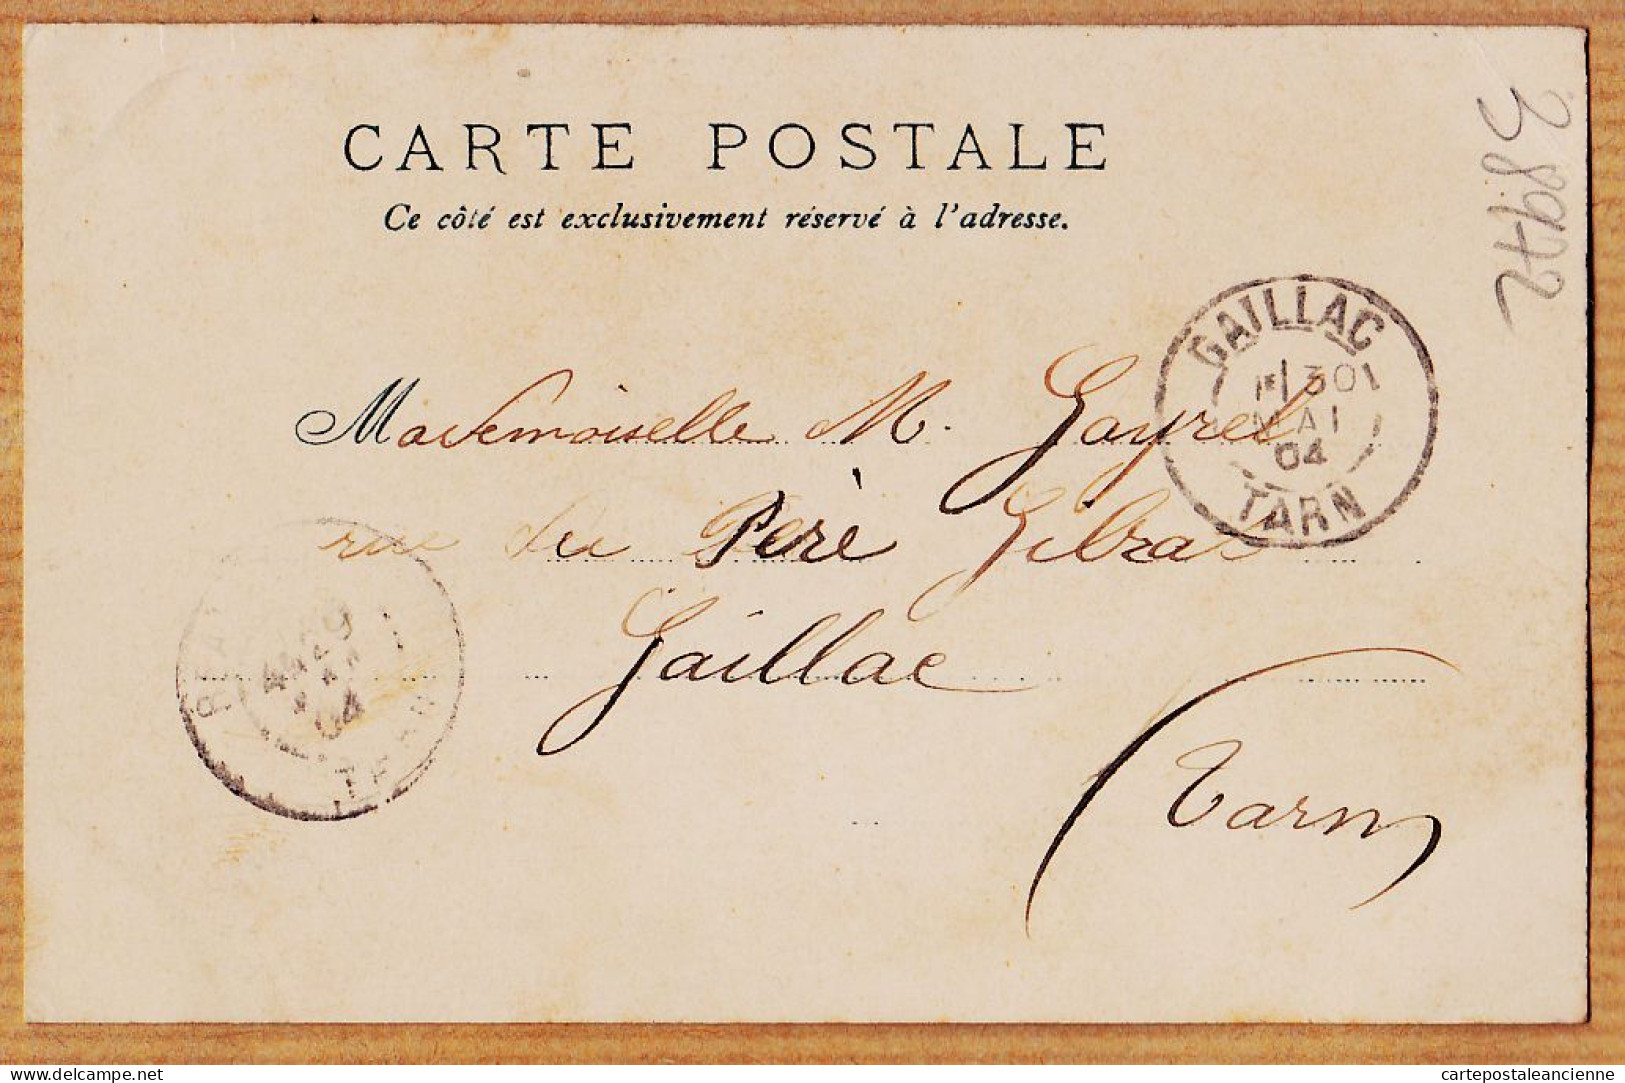 CARTE POSTALE
Ce côté est exclusivement réservé à l'adresse.
38972
GAILLAC
30
MAI
04
TARN
Mademoiselle M. Gayrel
rue du Père Gibrat
Gaillac
Tarn
29
04
TARN
cartepostaleancienne.com
cartepostaleancienne